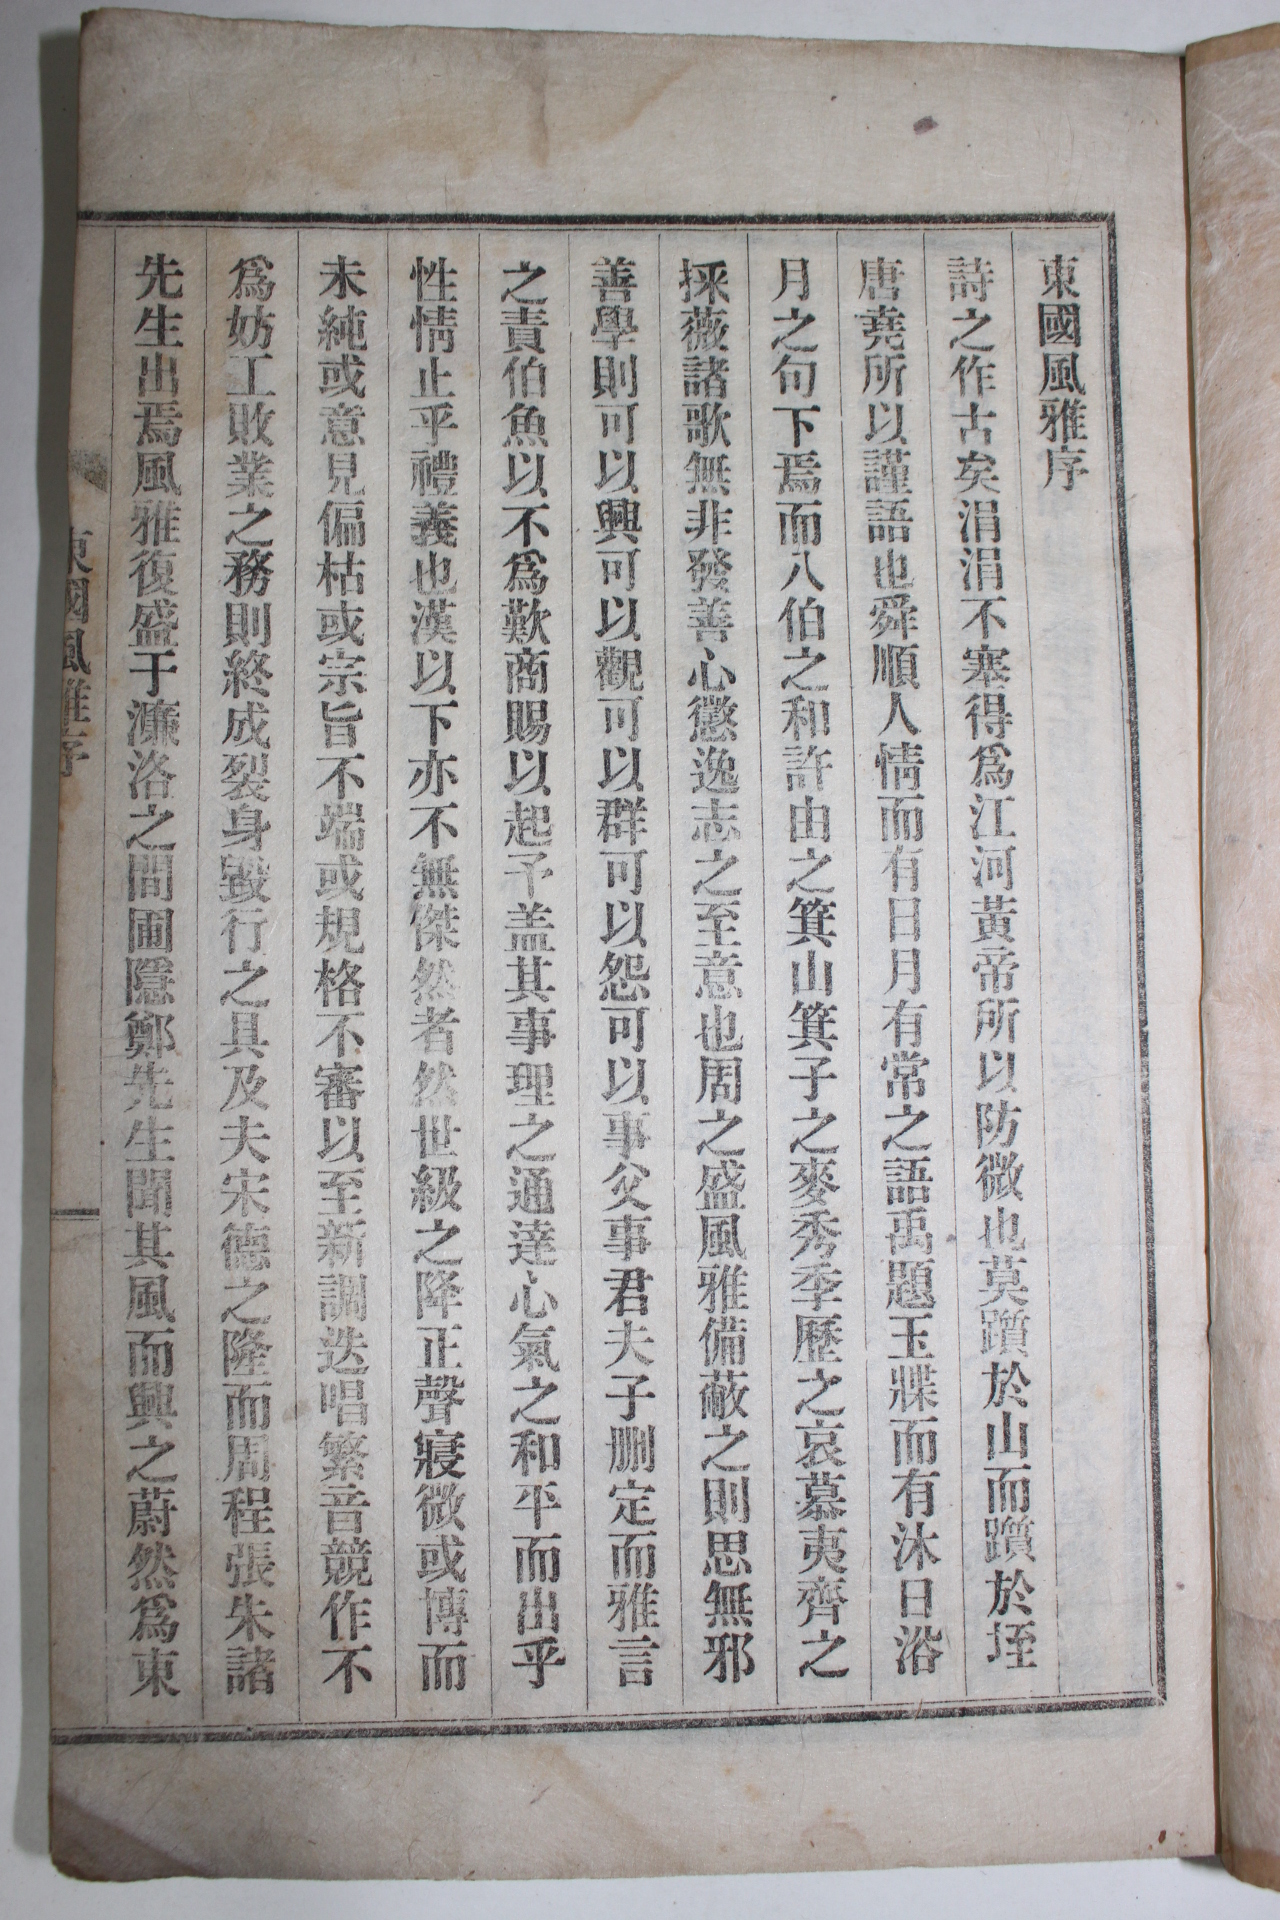 東國風雅序
詩之作古矣涓涓不塞得爲江河黃帝所以防微也莫躓於山而躓於垤
唐堯所以謹語也舜順人情而有日月有常之語禹題玉牒而有沐日浴
月之句下焉而八伯之和許由之箕山箕子之麥秀季歷之哀慕夷齊之
採薇諸歌無非發善心懲逸志之至意也周之盛風雅備蔽之則思無邪
善學則可以興可以觀可以群可以怨可以事父事君夫子删定而雅言
之責伯魚以不爲歎商賜以起予盖其事理之通達心氣之和平而出乎
性情止乎禮義也漢以下亦不無傑然者然世級之降正聲寢微或博而
未純或意見偏枯或宗旨不端或規格不審以至新調迭唱繁音競作不
爲妨工敗業之務則終成裂身毁行之具及夫宋德之隆而周程張朱諸
先生出焉風雅復盛于濂洛之間圃隱鄭先生聞其風而興之蔚然爲東
東國風雅序